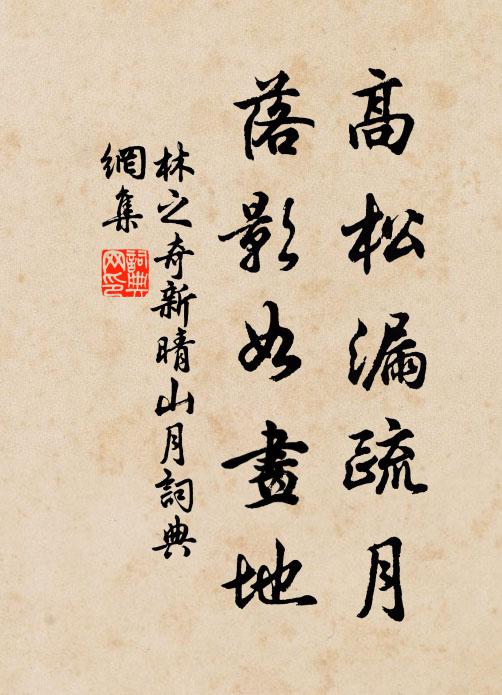 高松漏疏月
落影如畫地
林之奇新晴山月詞典
網集
詞典網印